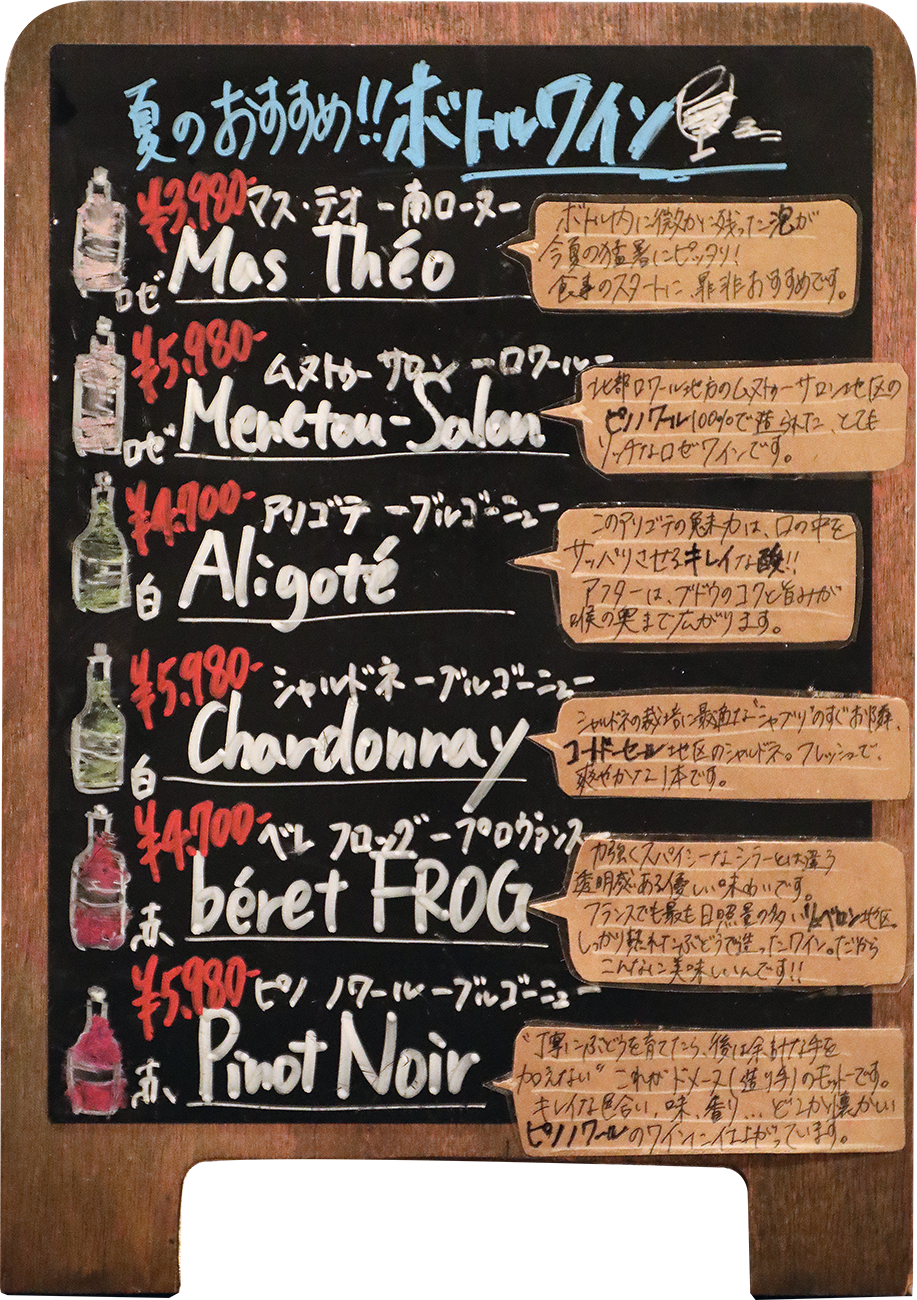 夏のおすすめ!!ボトルワイン
¥3,980- マス・テオ ー南ローヌー
ロゼ Mas Théo
ボトル内に微かに残った泡が
今夏の猛暑にピッタリ!
食事のスタートに、是非おすすめです。
¥5,980- ムヌトゥー サロン ーロワールー
ロゼ Menetou-Salon
北部ロワール地方のムヌトゥーサロン地区の
ピノノワール100%で造られた、とても
リッチなロゼワインです。
¥4,700- アリゴテ ーブルゴーニュー
白 Aligoté
このアリゴテの魅力は、口の中を
サッパリさせるキレイな酸!!
アフターは、ブドウのコクと旨みが
喉の奥まで広がります。
¥5,980- シャルドネ ーブルゴーニュー
白 Chardonnay
シャルドネの栽培に最適な"シャブリ"のすぐお隣、
コート・ド・セーヌ地区のシャルドネ。フレッシュで、
爽やかな1本です。
¥4,700- ベレ フロッグ ープロヴァンスー
赤 béret FROG
力強くスパイシーなシラーとは違う
透明感ある優しい味わいです。
フランスでも最も日照量の多いリュベロン地区。
しっかり熟れたぶどうで造ったワイン。だから
こんなに美味しいんです!!
¥5,980- ピノ ノワール ーブルゴーニュー
赤 Pinot Noir
"丁寧にぶどうを育てたら、後は余計な手を
加えない" これがドメーヌ(造り手)のモットーです。
キレイな色合い、味、香り...どこか懐かしい
ピノノワールのワインに仕上がっています。